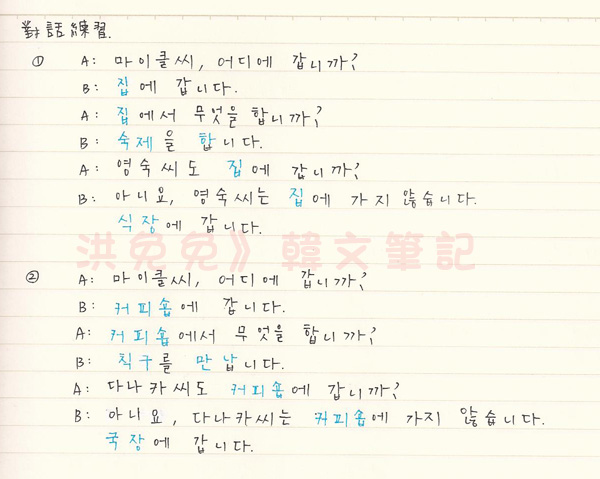 對話練習.
① A: 마이클씨, 어디에 갑니까?
B: 집에 갑니다.
A: 집에서 무엇을 합니까?
B: 숙제을 합니다.
A: 영숙씨도 집에 갑니까?
B: 아니요, 영숙씨는 집에 가지 않습니다.
식장에 갑니다.
洪兔兔》韓文筆記
② A: 마이클씨, 어디에 갑니까?
B: 커피숍에 갑니다.
A: 커피숍에서 무엇을 합니까?
B: 칙구를 만납니다.
A: 다나카씨도 커피숍에 갑니까?
B: 아니요, 다나카씨는 커피숍에 가지 않습니다.
국장에 갑니다.